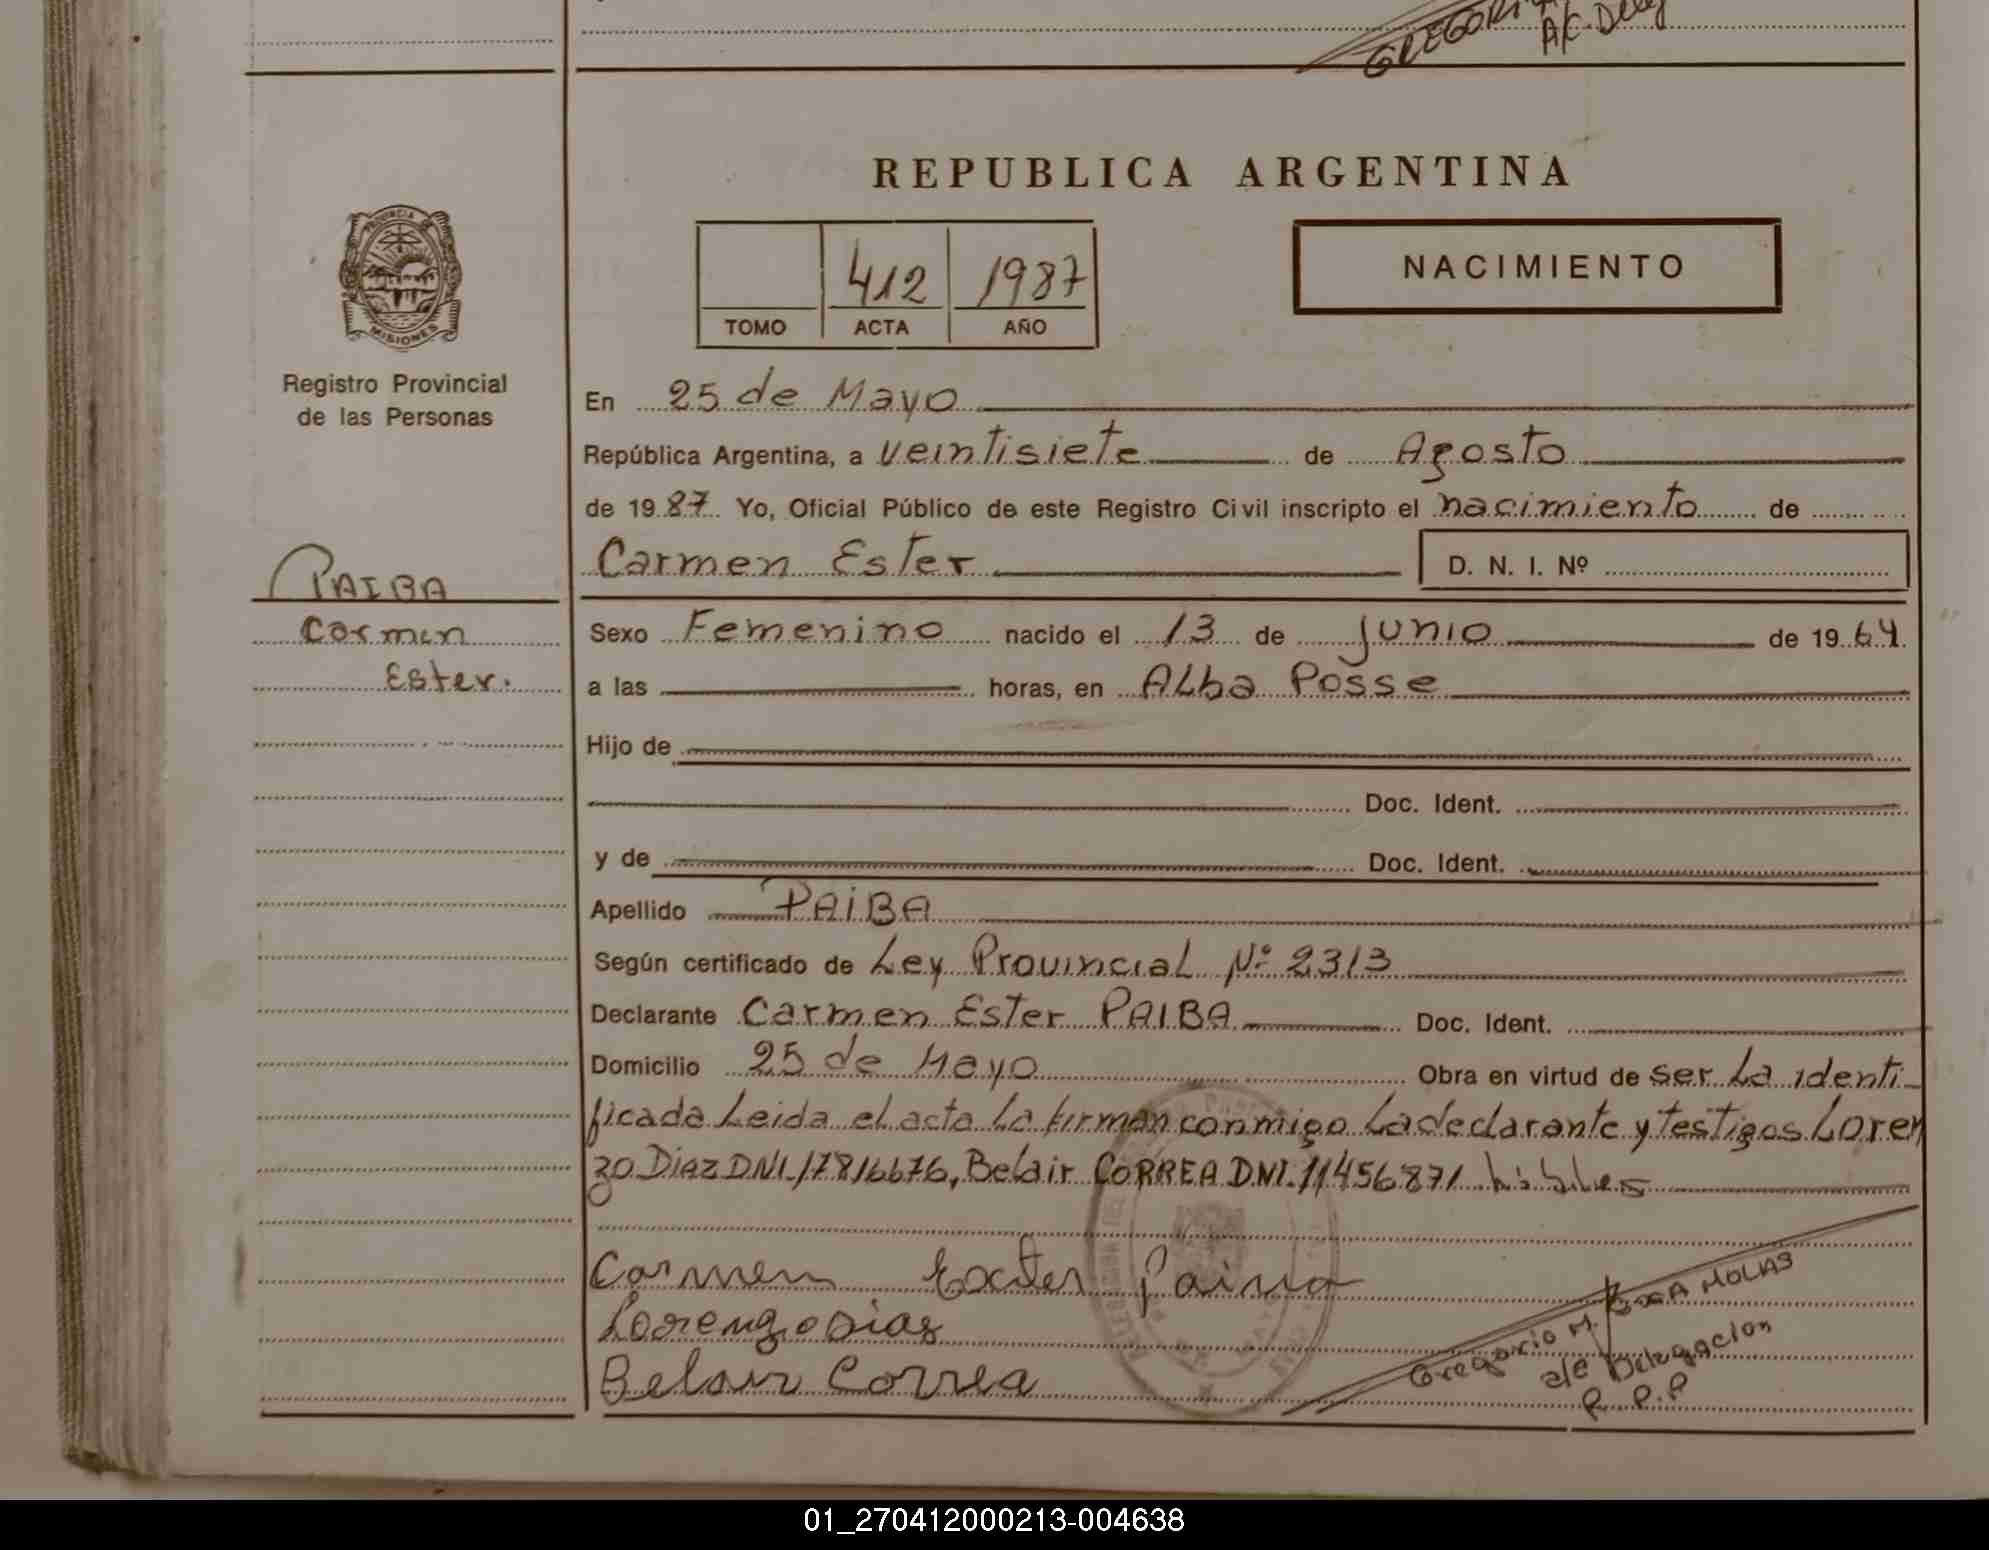 GREGORI
A/C. Deleg
REPUBLICA ARGENTINA
PROVINCIA DE
MISIONES
Registro Provincial
de las Personas
412 1987
TOMO ACTA AÑO
NACIMIENTO
En 25 de Mayo
República Argentina, a veintisiete de Agosto
de 19 87 Yo, Oficial Público de este Registro Civil inscripto el nacimiento de
Carmen Ester D. N. I. Nº
PAIBA
Carmen
Ester.
Sexo Femenino nacido el 13 de Junio de 19 64.
a las horas, en Alba Posse
Hijo de
Doc. Ident.
y de Doc. Ident.
Apellido PAIBA
Según certificado de Ley Provincial Nº 2313
Declarante Carmen Ester PAIBA Doc. Ident.
Domicilio 25 de Mayo Obra en virtud de ser La identi
ficada Leida el acta La firman conmigo La declarante y testigos Loren
zo Diaz DNI. 17816676, Belair CORREA DNI. 11456871 habiles
Carmen Exter Paiva
Lorenzo Dias
Belair Correa
Gregorio M. MOLAS
a/c Delegacion
R. P. P
01_270412000213-004638